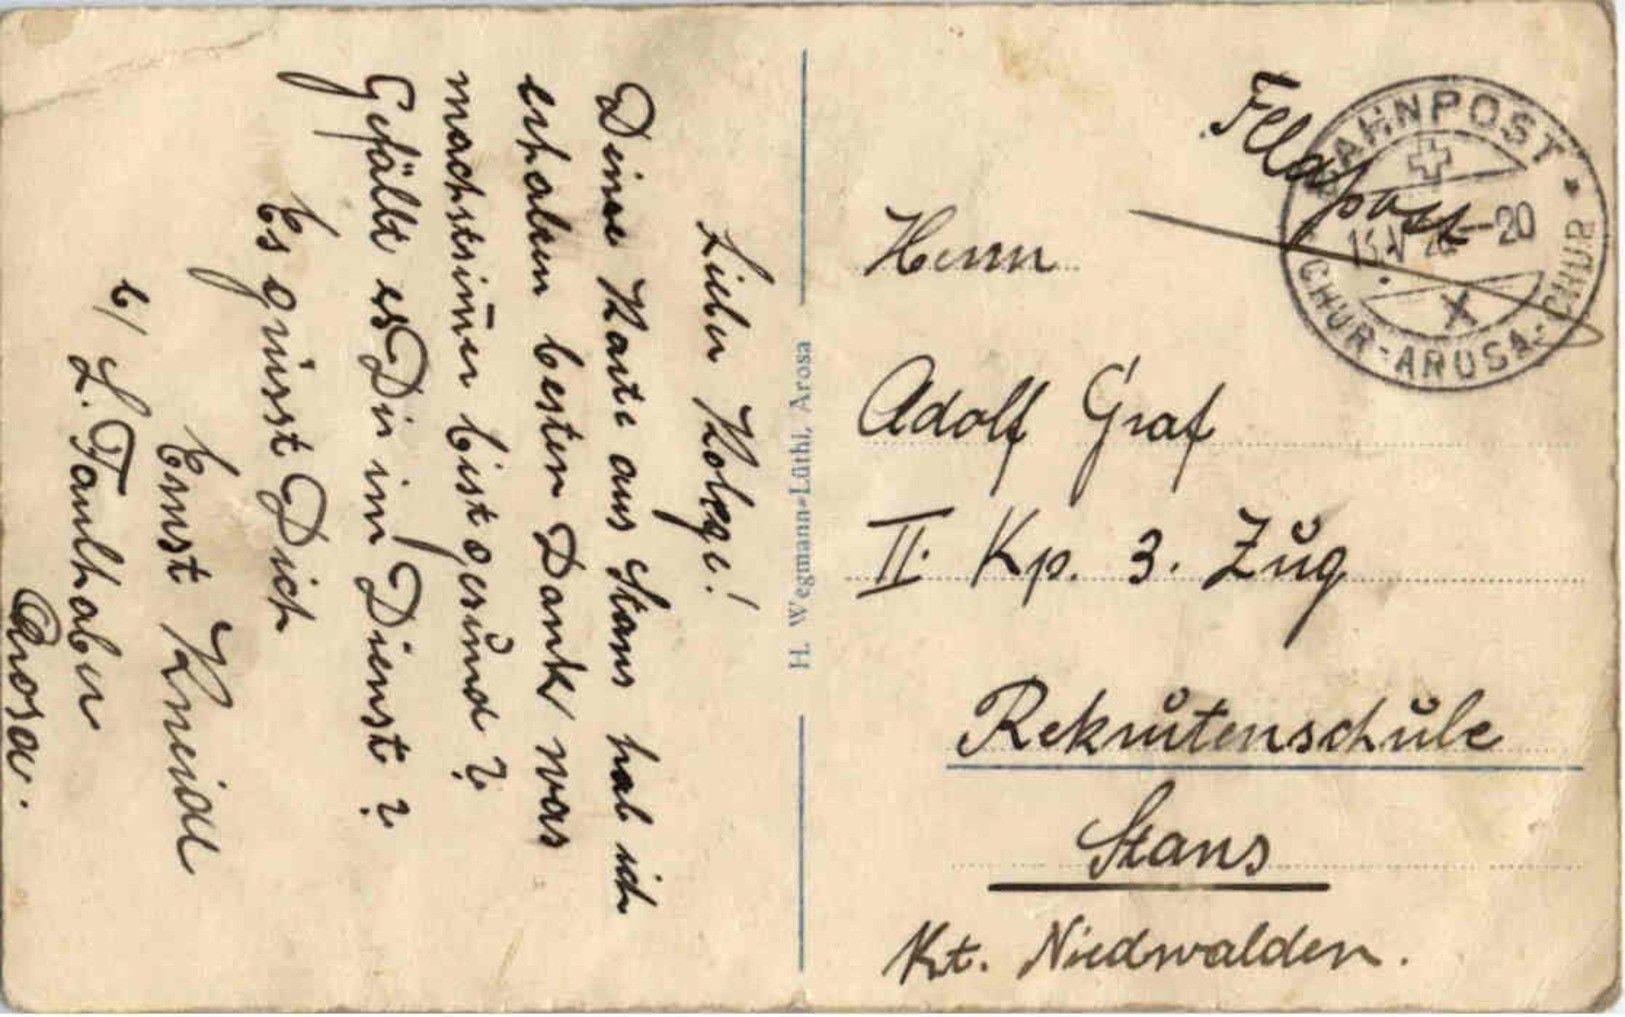 Lieber Kolege!
Deine Karte aus Stans hab ich
erhalten besten Dank was
machst immer bist gesund?
Gefällt es Dir im Dienst?
Es grüsst Dich
Ernst
b/ L. Tanlhaber
Arosa.
H. Wegmann-Lüthi, Arosa
Feldpost
BAHNPOST
-20
X
CHUR-AROSA-CHUR
Herrn
Adolf Graf
II. Kp. 3. Zug
Rekrutenschule
Stans
Kt. Niedwalden.